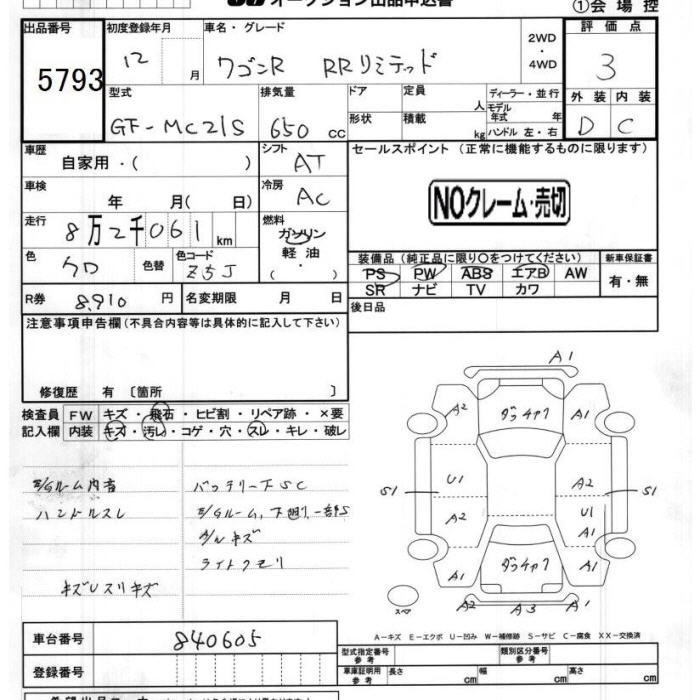 オークション出品申込書
①会場控
出品番号 5793
初度登録年月 12 月
車名・グレード ワゴンR RRリミテッド
2WD・4WD
評価点 3
外装 D 内装 C
型式 GF-MC21S
排気量 650 cc
ドア 形状
定員 人
積載 kg
ディーラー・並行
モデル年式 年
ハンドル 左・右
車歴 自家用・( )
シフト AT
車検 年 月( 日)
冷房 AC
走行 8万2千061 km
燃料 ガソリン 軽油 ( ・ )
色 色替 色コード Z5J
R券 8,910 円
名変期限 月 日
セールスポイント (正常に機能するものに限ります)
NOクレーム・売切
装備品 (純正品に限り○をつけてください)
PS PW ABS エアB AW
SR ナビ TV カワ
新車保証書 有・無
後日品
注意事項申告欄 (不具合内容等は具体的に記入して下さい)
修復歴 有 〔箇所 〕
検査員記入欄
FW キズ・飛石・ヒビ割・リペア跡・×要
内装 キズ・汚レ・コゲ・穴・スレ・キレ・破レ
E/Gルーム内音 バッテリー下SC
ハンドルスレ E/Gルーム、下廻り一部S
A/Wキズ
ライトクモリ
キズUスリキズ
A1
A2 ダッチャク A1
U1 A2
S1 S1
A2 U1
A1
A1 ダッチャク A1
スペア
A2 A3 A1
A-キズ E-エクボ U-凹み W-補修跡 S-サビ C-腐食 XX-交換済
車台番号 840605
登録番号
型式指定番号 参考
類別区分番号 参考
車庫証明用 参考 長さ cm 幅 cm 高さ cm